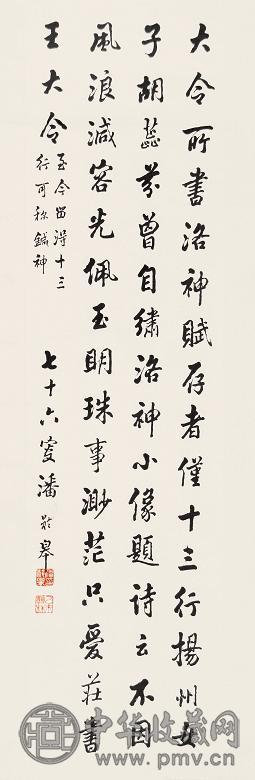 大令所書洛神賦存者僅十三行揚州女
子胡蕊芬曾自繡洛神小像題詩云不因
風浪減容光佩玉明珠事渺茫只愛莊書
王大令
至今留得十三
行可称鍼神
七十六叟潘齡皋
中华收藏网
www.pmv.cn